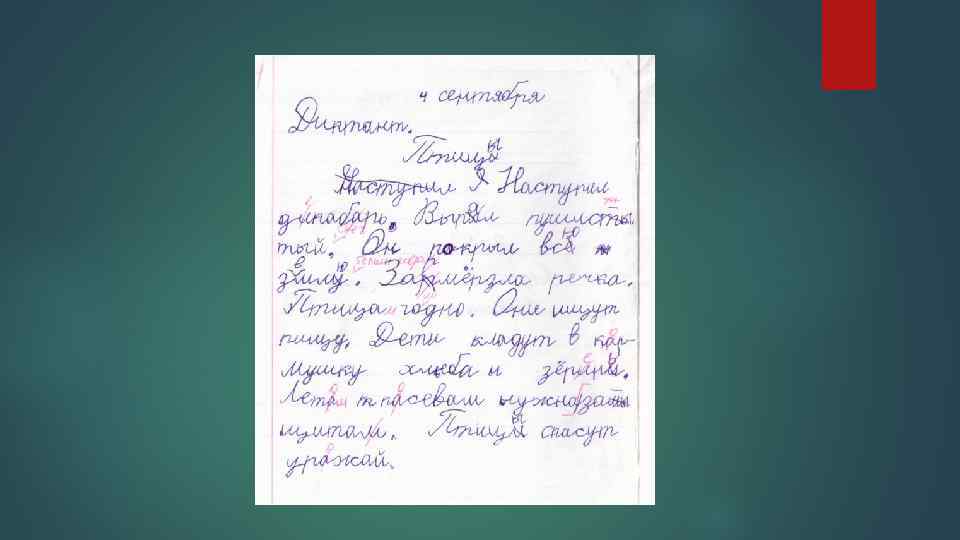 4 сентября
Диктант.
Птицы
Наступил Я Наступил
динабарь. Выпал пушисты
тый. Он покрыл всю
зимлю. Замёрзла речка.
Птицам годно. Они ищут
пищу. Дети кладут в кар-
мушку хлеба и зёрны.
Лета посевам нужна за
щитам. Птицы спасут
уражай.